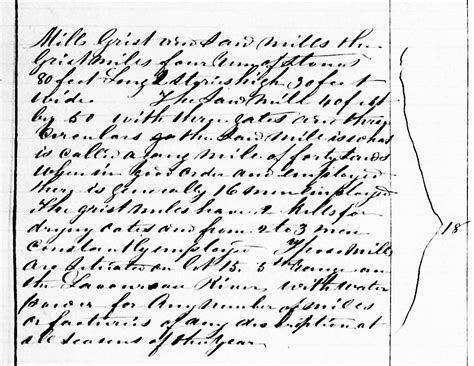 Mills Grist and Saw mills the
Grist miles four run of stones
80 feet Long 2 storis high 30 feet
wide The Saw Mill 40 feet
by 50 with three gates and three
Circulars the Saw Mile is what
is called a gang mile of forty
when in good order and employed
there is generaly 16 men employed
The grist miles have 2 kills for
drying oates and from 2 to 3 men
constantly employed These Mills
are situated on Lot 15. 5th Range on
the River, with water
power for Any number of miles
or factories of any discription at
all seasons of the year
18